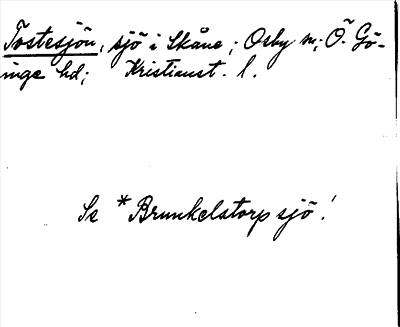 Tostesjön, sjö i Skåne; Osby sn; Ö. Gö-
inge hd; Kristianst. l.
Se *Brunkelstorpsjö!